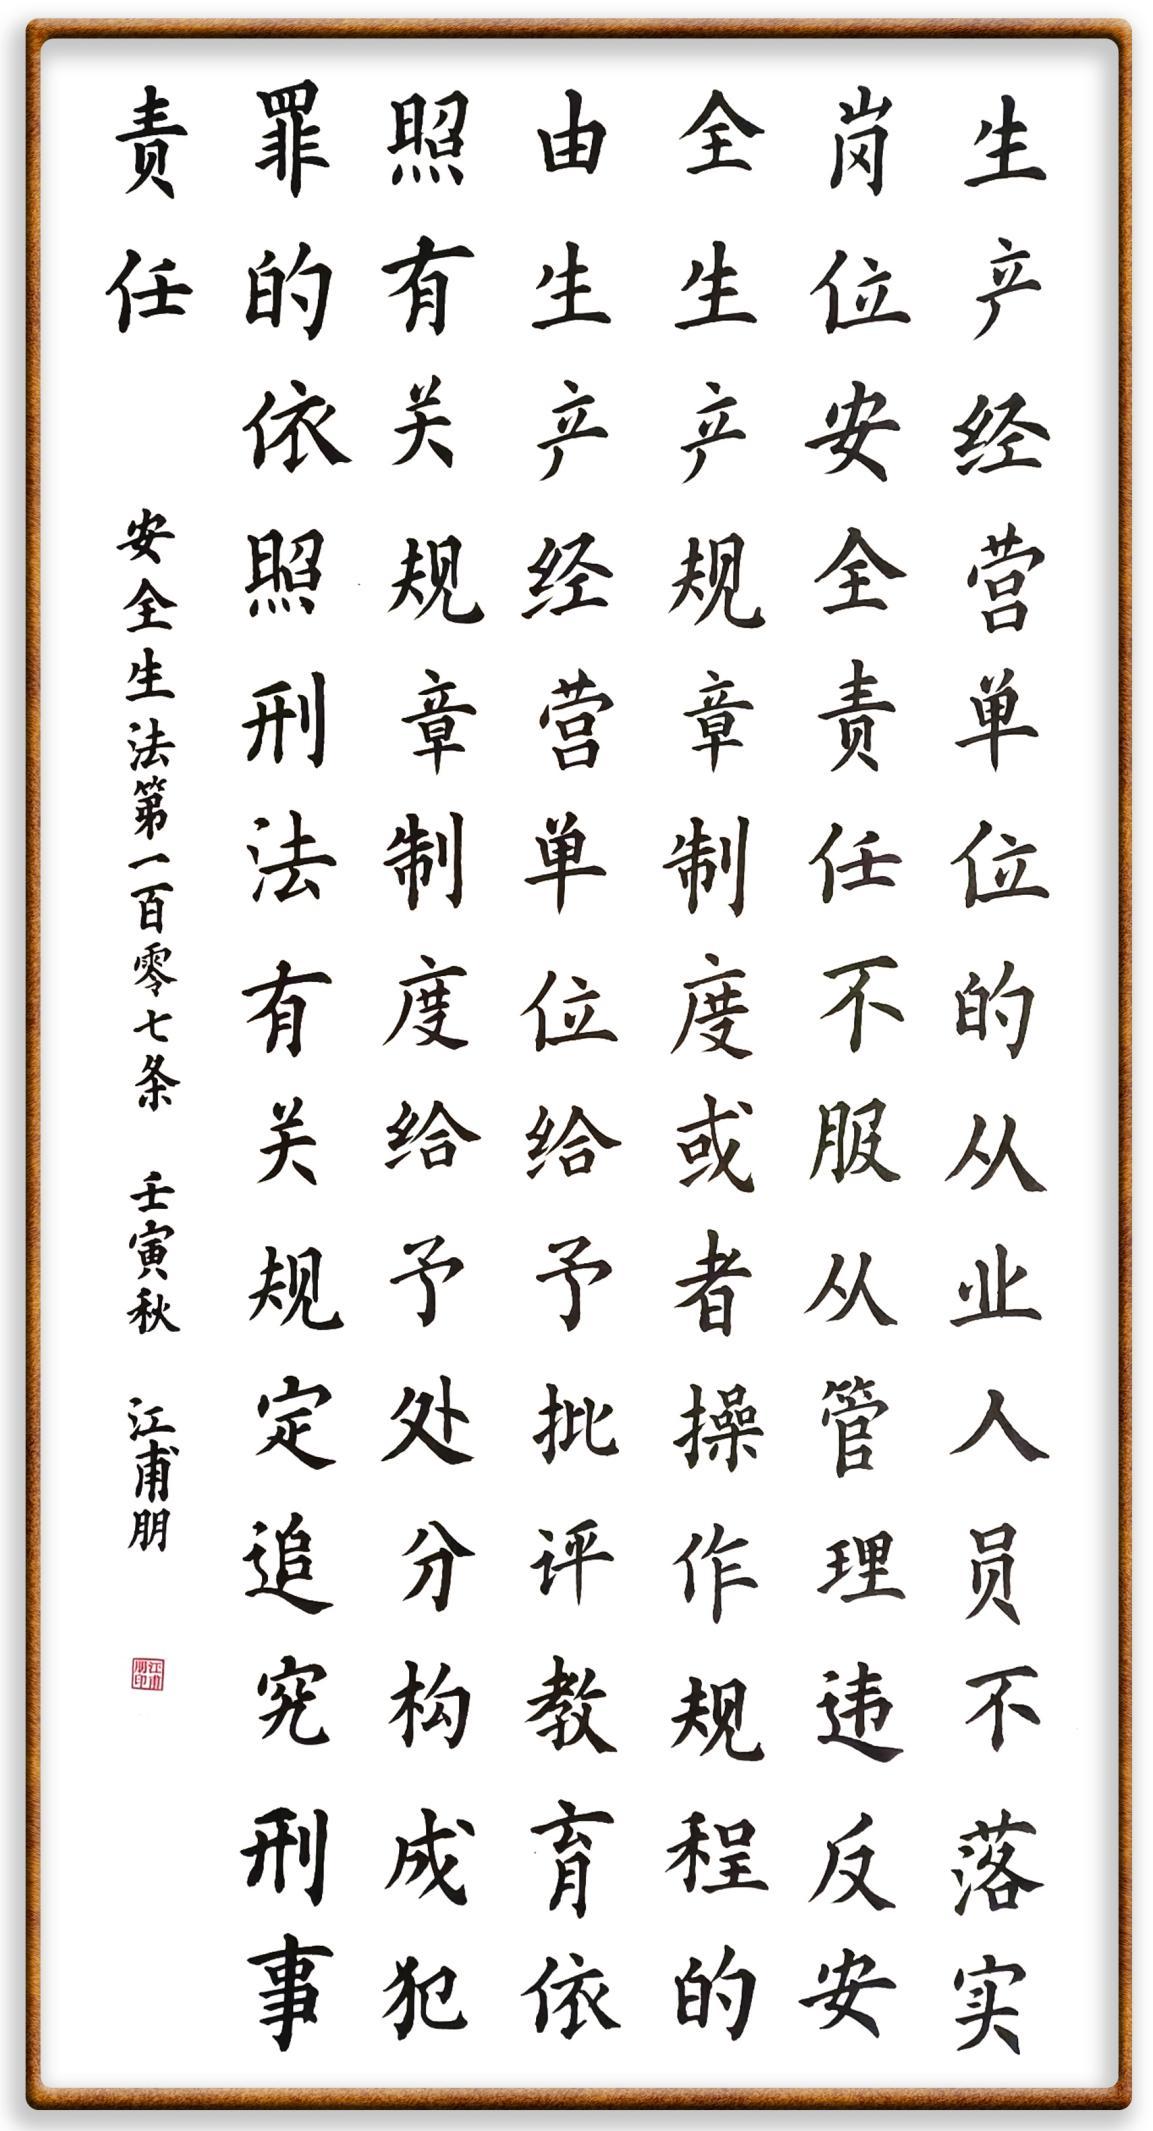 生产经营单位的从业人员不落实
岗位安全责任不服从管理违反安
全生产规章制度或者操作规程的
由生产经营单位给予批评教育依
照有关规章制度给予处分构成犯
罪的依照刑法有关规定追究刑事
责任
安全生法第一百零七条 壬寅秋 江甫朋